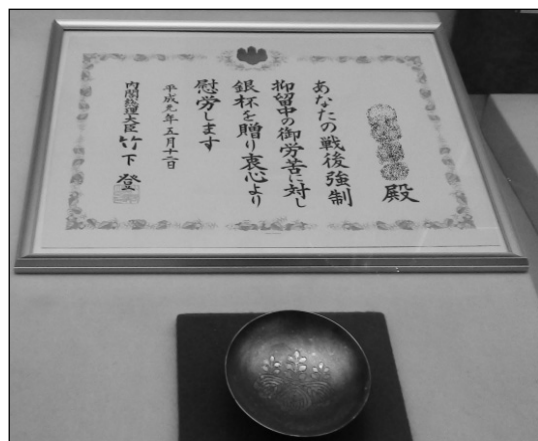 殿
あなたの戦後強制
抑留中の御労苦に対し
銀杯を贈り衷心より
慰労します
平成元年五月十二日
内閣総理大臣 竹下 登